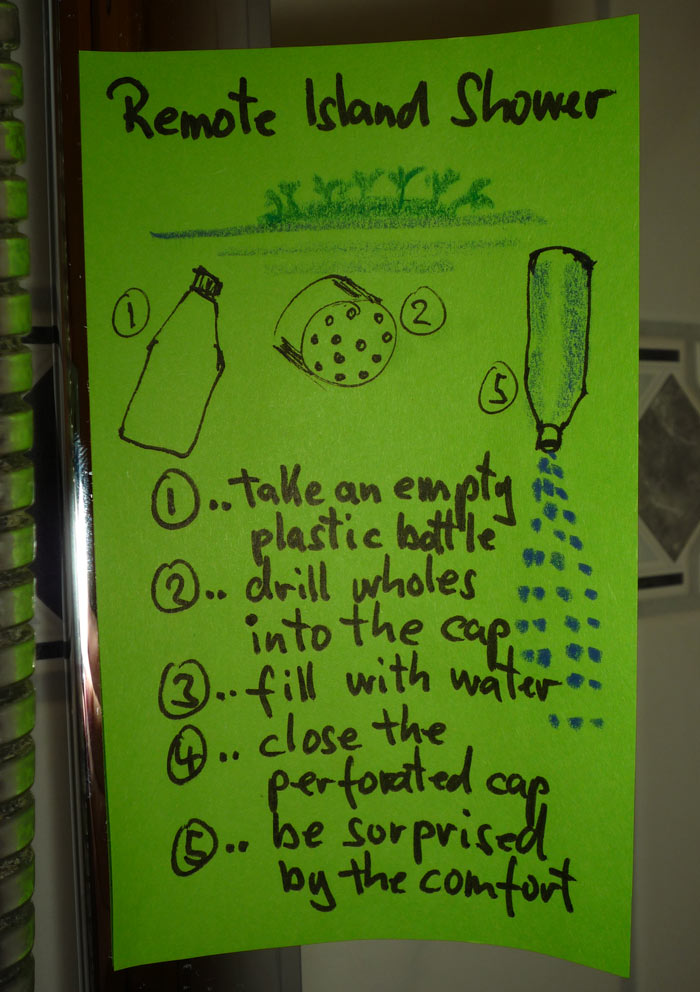 Remote Island Shower
1
2
5
1.. take an empty
plastic bottle
2.. drill wholes
into the cap
3.. fill with water
4.. close the
perforated cap
5.. be surprised
by the comfort